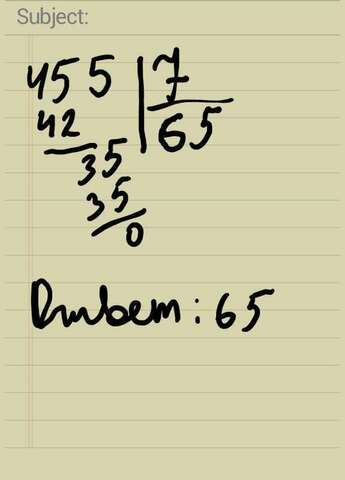 Subject:
455 | 7
42 65
35
35
0
Ответ: 65